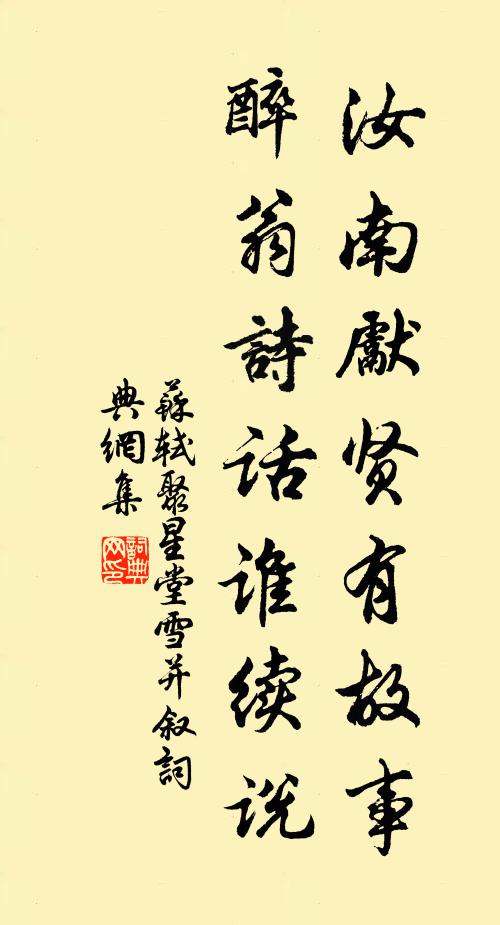 汝南獻贤有故事
醉翁詩话谁续说
蘇轼聚星堂雪并叙詞
典網集
詞典
网印